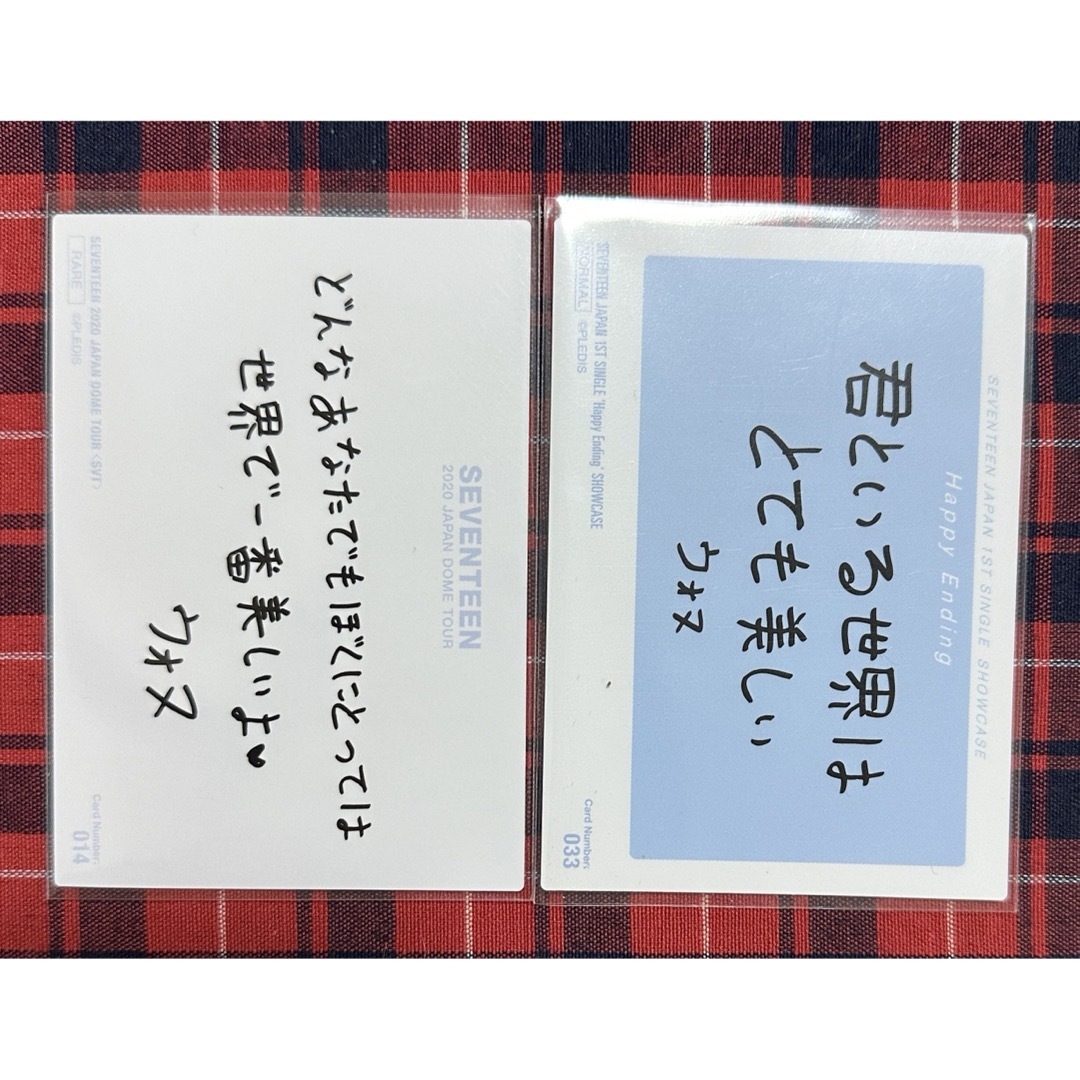 SEVENTEEN
2020 JAPAN DOME TOUR
どんなあなたでもぼくにとっては
世界で一番美しいよ♥
ウォヌ
SEVENTEEN 2020 JAPAN DOME TOUR <SVT>
RARE ©PLEDIS
Card Number:
014
SEVENTEEN JAPAN 1ST SINGLE SHOWCASE
Happy Ending
君といる世界は
とても美しい
ウォヌ
SEVENTEEN JAPAN 1ST SINGLE 'Happy Ending' SHOWCASE
NORMAL ©PLEDIS
Card Number:
033